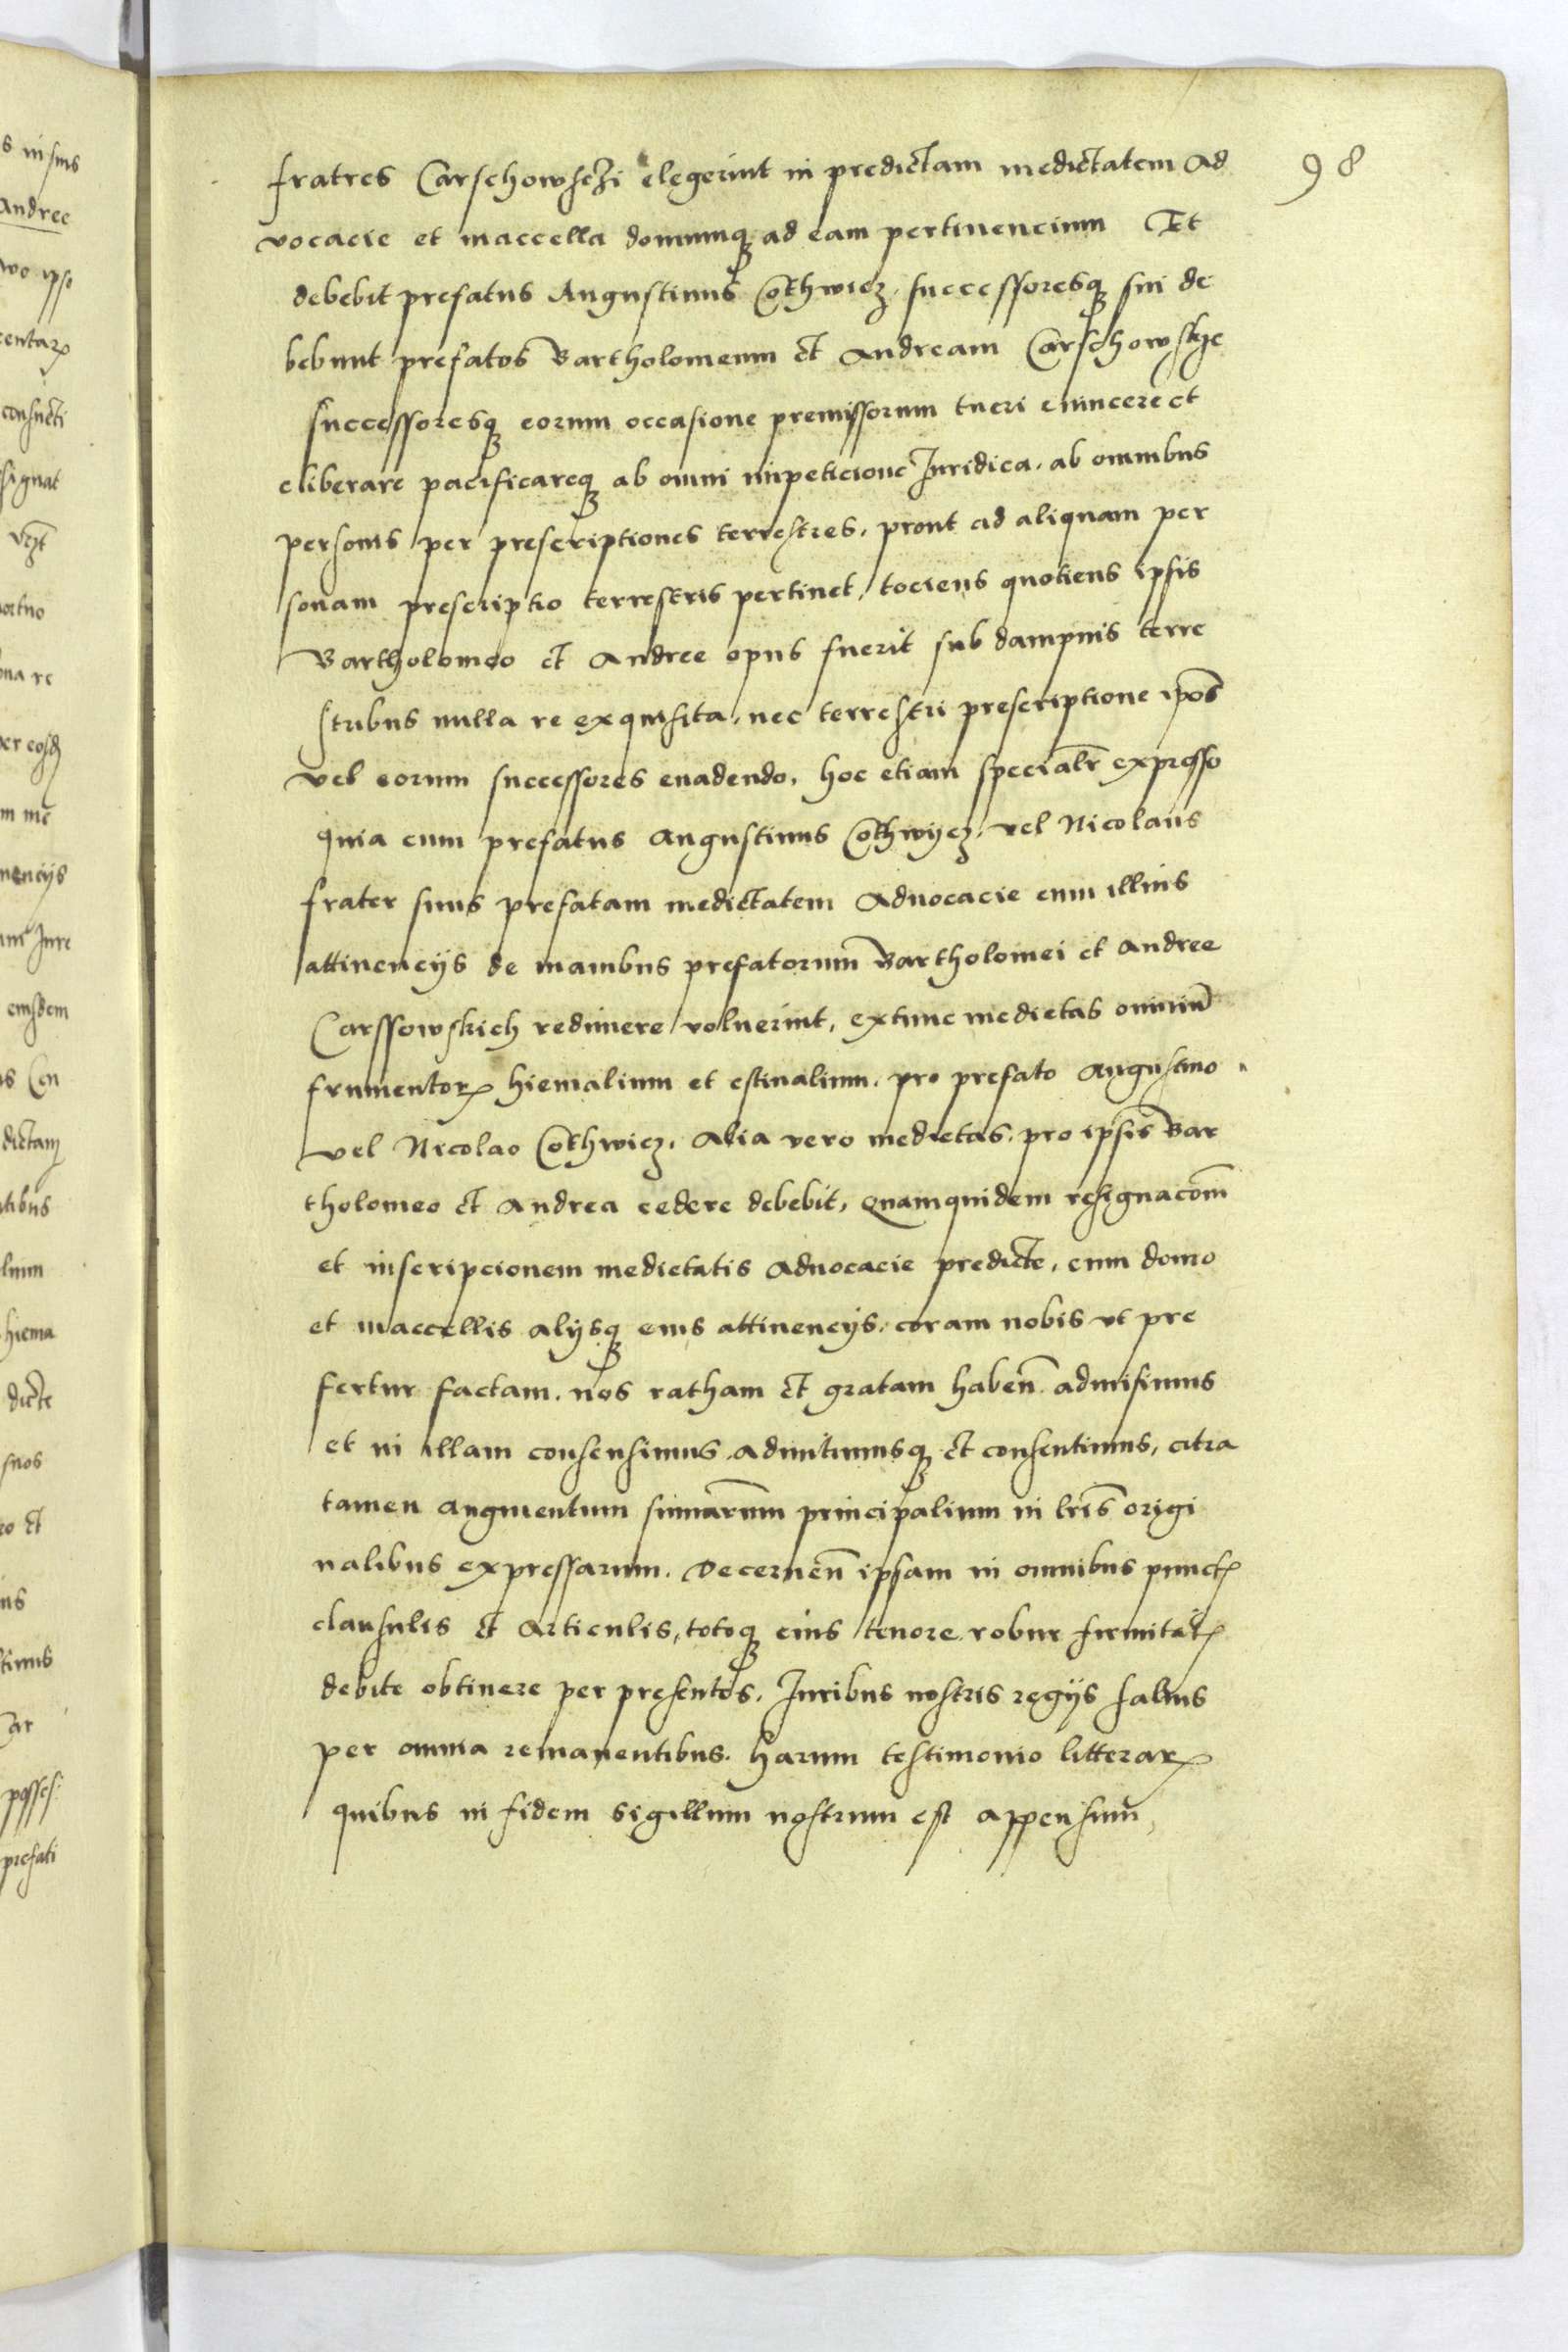 98
fratres Carschowsczi elegerint in predictam medietatem Ad
vocacie et maccella domumq̃ ad eam pertinencium Et
debebit prefatus Augustinus Cothwicz, successoresq̃ sui de
bebunt prefatos Bartholomeum et Andream Carschowskye
successoresq̃ eorum occasione premissorum tueri evincere et
eliberare pacificareq̃ ab omni impeticione Juridica, ab omnibus
personis per prescriptiones terrestres, prout ad aliquam per
sonam prescriptio terrestris pertinet, tociens quotiens ipsis
Bartholomeo et Andree opus fuerit sub dampnis terre
stribus nulla re exquisita, nec terrestri prescriptione ip̃os
vel eorum successores euadendo, hoc etiam specialr̃ expresso
quia cum prefatus Augustinus Cothwijcz, vel Nicolaus
frater suus prefatam medietatem Aduocacie cum illius
attinencijs de manibus prefatorum Bartholomei et Andree
Carssowskich redimere voluerint, extunc medietas omniũ
frumentorꝝ hiemalium et estiualium, pro prefato Augustino
vel Nicolao Cothwicz, Alia vero medietas, pro ipsis Bar
tholomeo et Andrea cedere debebit, Quamquidem resignacõm
et inscripcionem medietatis Aduocacie predicte, cum domo
et maccellis alijsq̃ eius attinencijs, coram nobis vt pre
fertur factam, nos ratham et gratam habeñ admisimus
et in illam consensimus, admittimusq̃ et consentimus, citra
tamen augmentum sum̃arum principalium in lr̃is origi
nalibus expressarum. Decerneñ ipsam in omnibus punctꝭ
clausulis et Articulis, totoq̃ eius tenore robur firmitatꝭ
debite obtinere per presentes, Juribus nostris regijs saluis
per omnia remanentibus. Harum testimonio litterarꝝ
quibus in fidem sigillum nostrum est appensum,